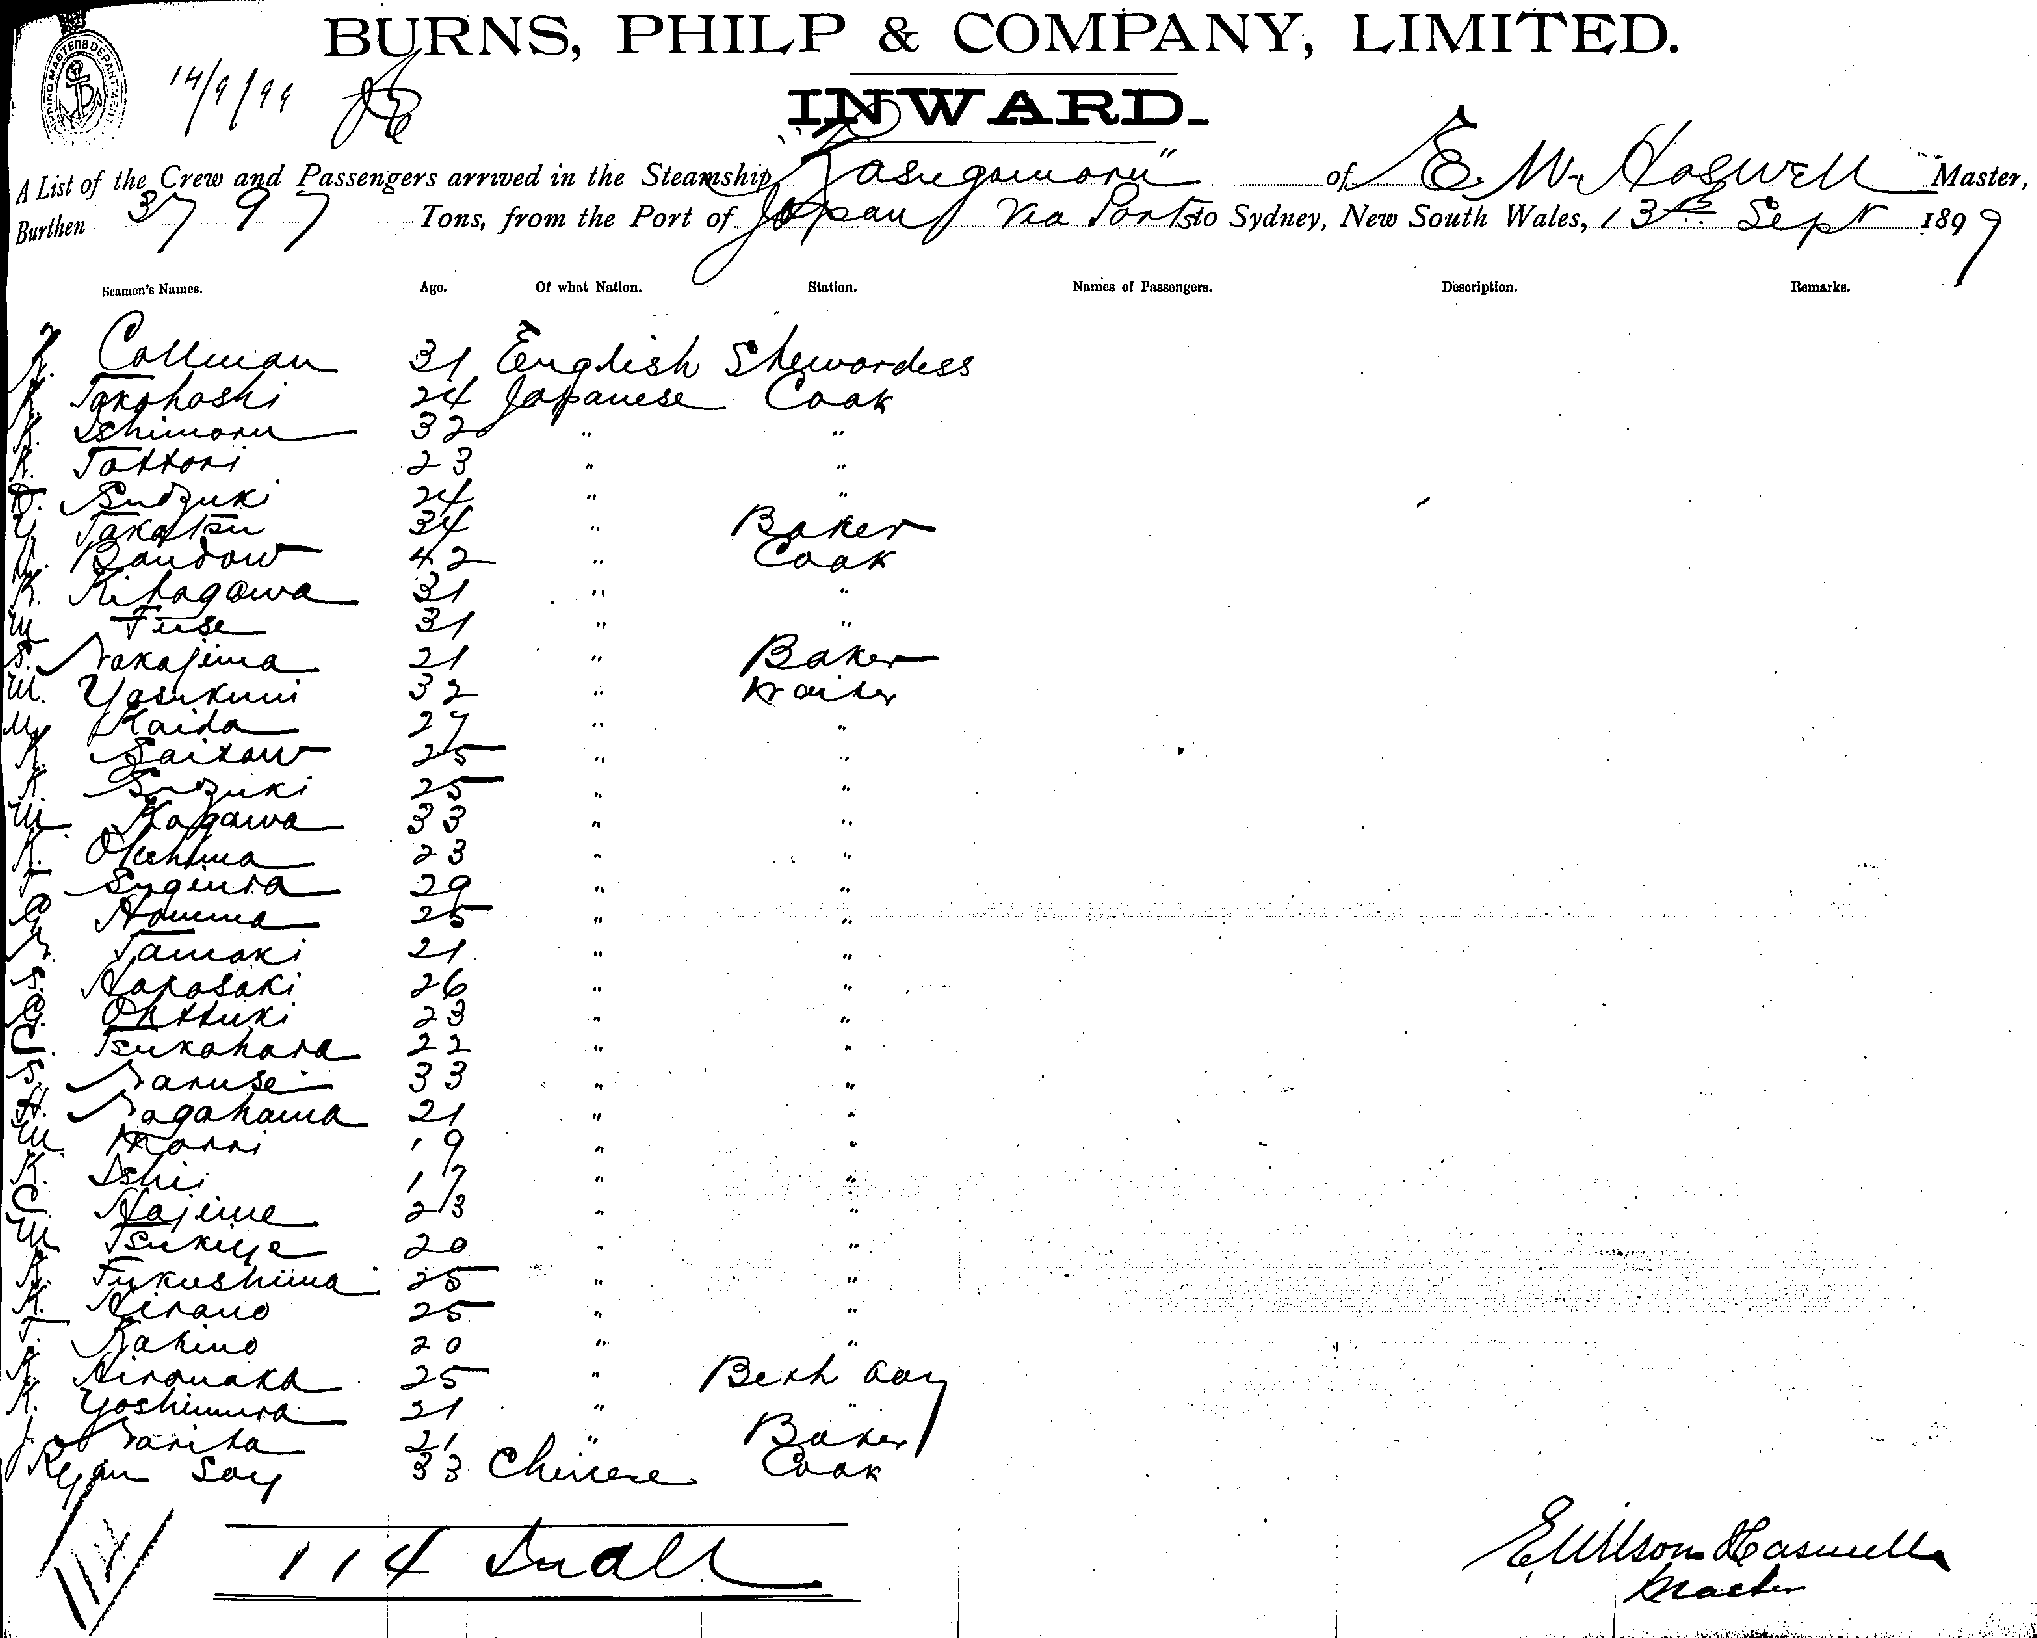 BURNS, PHILP & COMPANY, LIMITED.
14/9/99
INWARD.
A List of the Crew and Passengers arrived in the Steamship "Kasugamaru" of E. W. Haswell Master,
Burthen 3797 Tons, from the Port of Japan via Ports to Sydney, New South Wales, 13th Sept 1899
Seamen's Names. Age. Of what Nation. Station. Names of Passengers. Description. Remarks.
Collman 31 English Stewardess
K. Takahashi 24 Japanese Cook
K. Ishimaru 32 " "
K. Tattori 23 " "
Sudzuki 24 " "
Y. Takatsu 34 " Baker
Bandow 42 " Cook
K. Kitagawa 31 " "
M. Fuse 31 " "
S. Nakajima 21 " Baker
M. Yasukuni 32 " Waiter
M. Kaida 27 " "
K. Saitow 25 " "
K. Suzuki 25 " "
M. Kagawa 33 " "
K. Okuhma 23 " "
T. Sugiura 29 " "
G. Homma 25 " "
Tamaki 21 " "
S. Harasaki 26 " "
G. Ohttuki 23 " "
C. Tsukahara 22 " "
S. Naruse 33 " "
H. Nagahama 21 " "
M. Morri 19 " "
K. Ishii 17 " "
C. Hajime 23 " "
M. Tsukuye 20 " "
K. Fukushima 25 " "
K. Hirano 25 " "
T. Kakino 20 " "
K. Hironaka 25 " Bath boy
K. Yoshimura 21 " "
J. Narita 21 " Baker
Say 33 Chinese Cook
114
114 In all
E. Wilson Haswell
Master